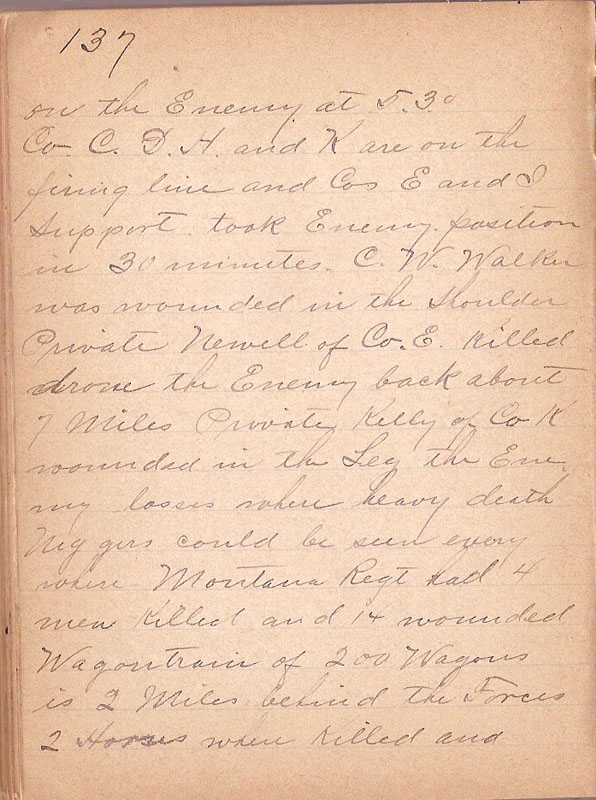 137
on the Enemy at 5.30
Co C. D. H. and K are on the
firing line and Cos E and I
Support. took Enemy position
in 30 minutes. C. W. Walker
was wounded in the shoulder
Private Newell of Co. E. Killed
drove the Enemy back about
7 Miles Private Kelly of Co K
woundad in the Leg the Ene
my losses where heavy death
Niggers could be seen every
where. Montana Regt had 4
men Killed and 14 wounded
Wagontrain of 200 Wagons
is 2 Miles behind the Forces
2 Horses where Killed and